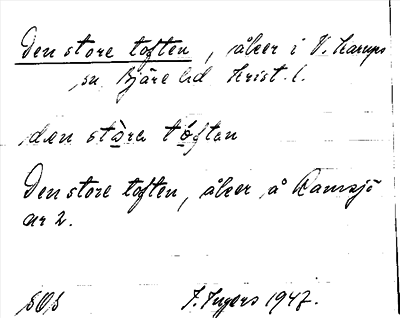 Den store toften, åker i V. Karups
sn Bjäre hd Krist. l.
den stòra tóftan
Den store toften, åker å Ramsjö
nr 2.
I. Ingers 1947.